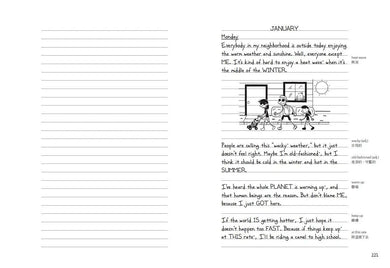 JANUARY
Monday
Everybody in my neighborhood is outside today enjoying
the warm weather and sunshine. Well, everyone except
ME. It's kind of hard to enjoy a heat wave when it's
the middle of the WINTER.
heat wave
People are calling this "wacky weather," but it just
doesn't feel right. Maybe I'm old-fashioned, but I
think it should be cold in the winter and hot in the
SUMMER.
wacky (adj.)
old-fashioned (adj.)
I've heard the whole PLANET is warming up, and
that human beings are the reason. But don't blame ME,
because I just GOT here.
warm up
If the world IS getting hotter, I just hope it
doesn't happen too FAST. Because if things keep up
AT THIS rate, I'll be riding a camel to high school.
keep up
at this rate
221